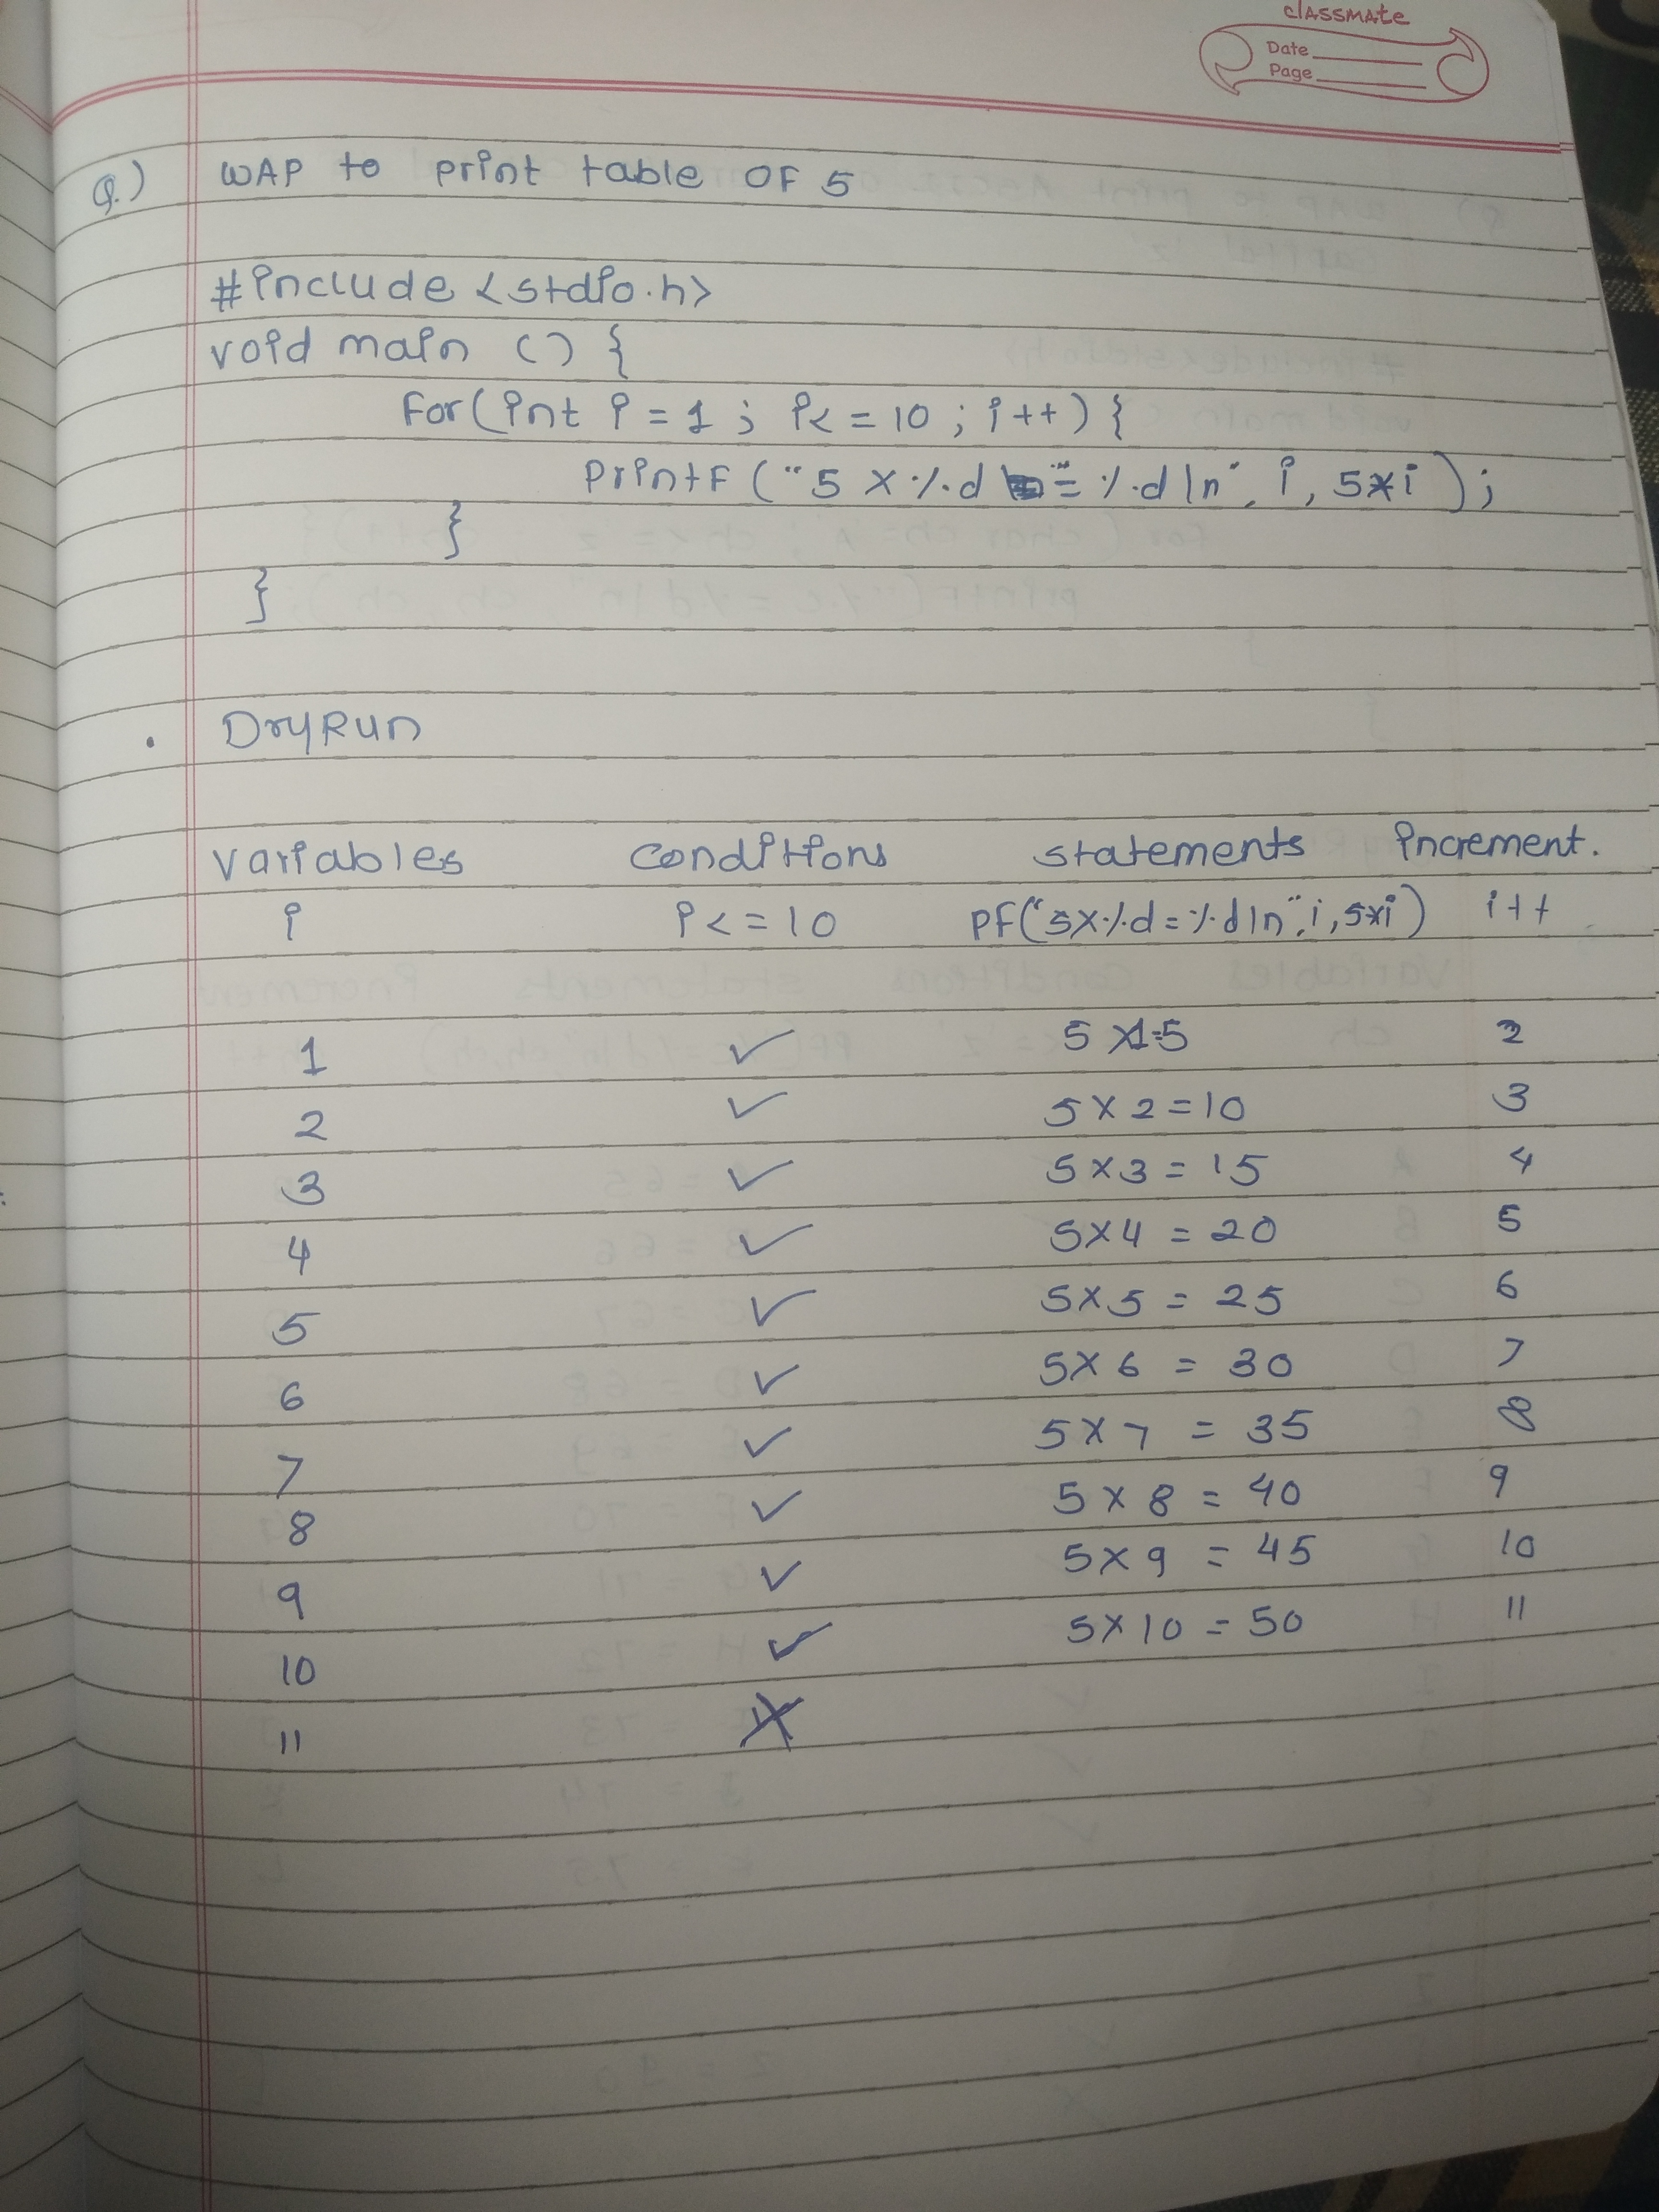 classmate
Date
Page
Q.) WAP to print table OF 5
#include <stdio.h>
void main () {
For(int i = 1 ; i <= 10 ; i++) {
printF ("5 X %d = %d \n", i, 5*i);
}
}
• DryRun
Variables Conditions statements increment.
i i <= 10 PF("5X%d=%d\n",i,5*i) i++
1 ✓ 5 X1=5 2
2 ✓ 5 X 2 = 10 3
3 ✓ 5 X 3 = 15 4
4 ✓ 5X4 = 20 5
5 ✓ 5X5 = 25 6
6 ✓ 5X 6 = 30 7
7 ✓ 5 X 7 = 35 8
8 ✓ 5 X 8 = 40 9
9 ✓ 5X 9 = 45 10
10 ✓ 5X 10 = 50 11
11 X